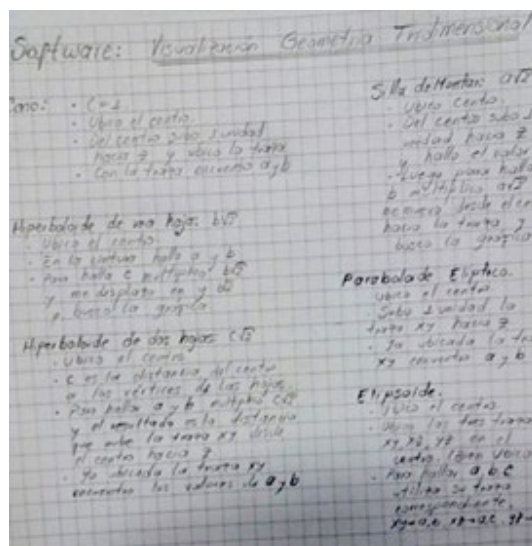 Software: Visualización Geometría Tridimensional
Cono: · C=1
· Ubico el centro.
· Del centro subo 1 unidad
hacia z, y ubico la traza
· Con la traza encuentro a y b
Hiperboloide de una hoja: b√2
· Ubico el centro
· En la cintura hallo a y b
· Para hallar c multiplico b√2
y me desplazo en y b√2
y busco la gráfica
Hiperboloide de dos hojas c√2
· Ubico el centro
· c es la distancia del centro
a los vértices de las hojas.
· Para hallar a y b multiplico c√2
y el resultado es la distancia
que sube la traza xy desde
el centro hacia z
· Ya ubicada la traza xy
encuentro los valores de a y b
Silla de Montar: a√2
· Ubico centro.
· Del centro subo 1
unidad hacia z
y hallo el valor
· Luego para hallar
b multiplico a√2
me muevo desde el cen
hacia la traza y
busco la gráfica
Paraboloide Elíptico.
· Ubico el centro
· Subo 1 unidad la
traza xy hacia z
· Ya ubicada la tra
xy encuentro a y b
Elipsoide.
· Ubico el centro.
· Ubico las tres trazas
xy, xz, yz en el
centro bien ubica
· Para hallar a b c
utilizo su traza
correspondiente.